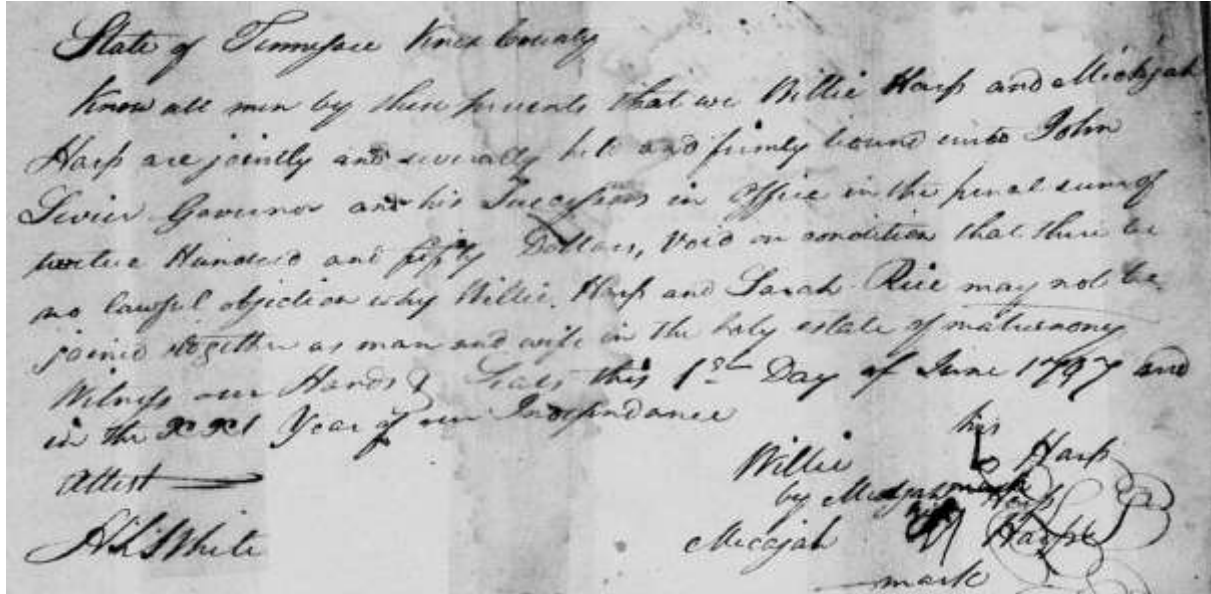 State of Tennessee Knox County
Know all men by these presents that we Willie Harp and Michajah
Harp are jointly and severally held and firmly bound unto John
Sevier Governor and his Successors in Office in the penal sum of
twelve Hundred and fifty Dollars, Void on condition that there be
no lawful objection why Willie Harp and Sarah Rice may not be
joined together as man and wife in the holy estate of matrimony
Witness our Hands & Seals this 1st Day of June 1797 and
in the XXI Year of our Independance
his
Attest
Willie Harp
by Micajah Harp
Micajah Harpe
H L White
mark